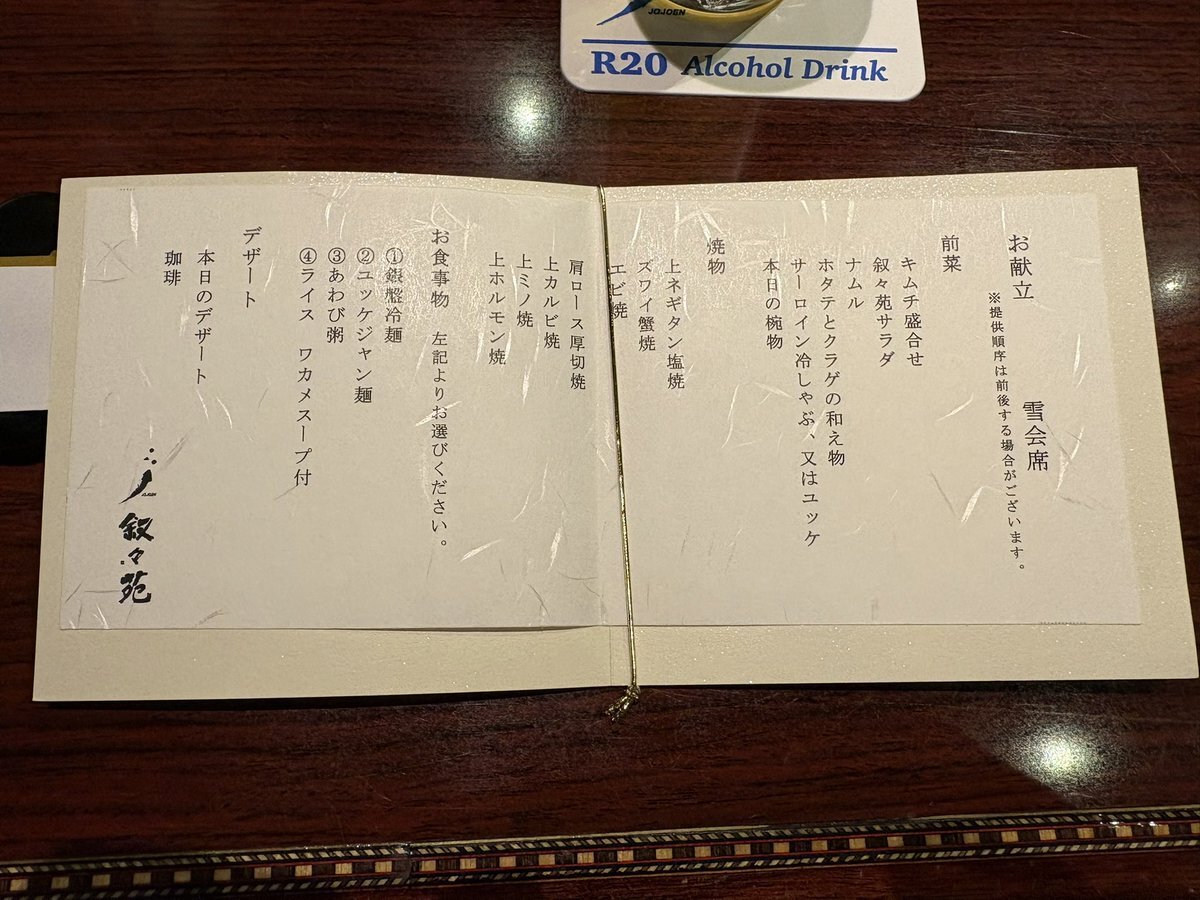 JOJOEN
R20 Alcohol Drink
お献立　雪会席
※提供順序は前後する場合がございます。
前菜
キムチ盛合せ
叙々苑サラダ
ナムル
ホタテとクラゲの和え物
サーロイン冷しゃぶ、又はユッケ
本日の椀物
焼物
上ネギタン塩焼
ズワイ蟹焼
エビ焼
肩ロース厚切焼
上カルビ焼
上ミノ焼
上ホルモン焼
お食事物　左記よりお選びください。
①銀盤冷麺
②ユッケジャン麺
③あわび粥
④ライス　ワカメスープ付
デザート
本日のデザート
珈琲
JOJOEN
叙々苑